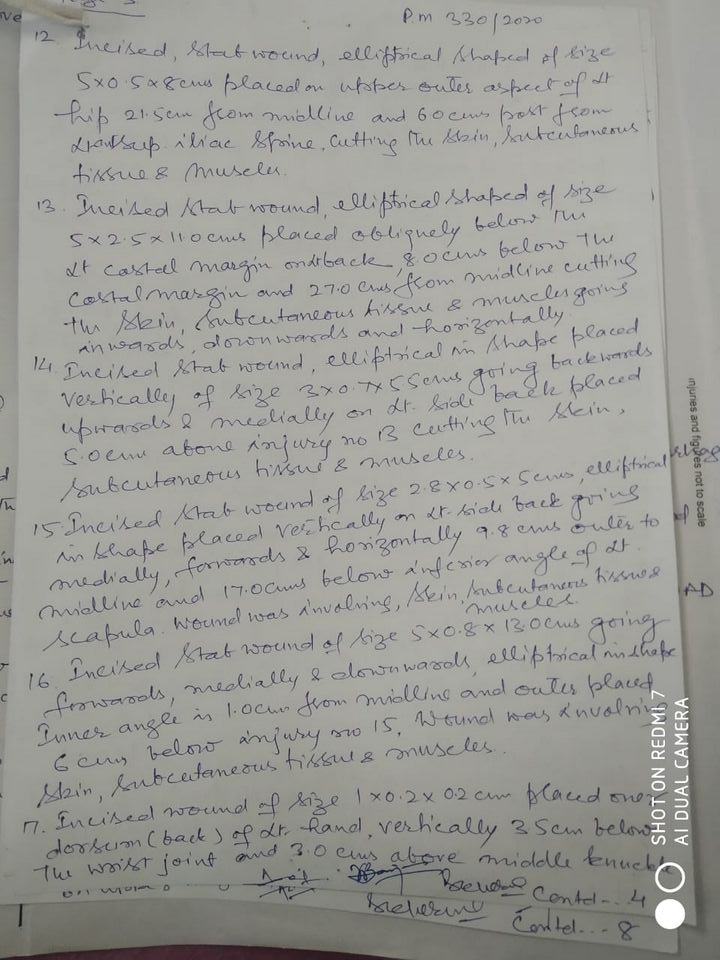 Pm 330/2020
12. Incised, stab wound, elliptical shaped of size
5x0.5x8cms placed on upper outer aspect of Lt
hip 21.5cm from midline and 6.0cms post from
sup. iliac spine, cutting the skin, subcutaneous
tissue & muscles.
13. Incised stab wound, elliptical shaped of size
5x2.5x11.0cms placed obliquely below the
Lt costal margin on back, 8.0cms below the
costal margin and 27.0 cms from midline cutting
the skin, subcutaneous tissue & muscles going
inwards, downwards and horizontally.
14. Incised stab wound, elliptical in shape placed
vertically of size 3x0.7x5.5cms going backwards
upwards & medially on Lt. side back placed
5.0cm above injury no 13 cutting the skin,
subcutaneous tissue & muscles.
15. Incised stab wound of size 2.8x0.5x5cms, elliptical
in shape placed vertically on Lt. side back going
medially, forwards & horizontally 9.8 cms outer to
midline and 17.0cms below inferior angle of Lt.
scapula. Wound was involving, skin, subcutaneous tissue &
muscles.
16. Incised stab wound of size 5x0.8x13.0cms going
forwards, medially & downwards, elliptical in shape
Inner angle is 1.0cm from midline and outer placed
6 cms below injury no 15. Wound was involving
skin, subcutaneous tissue & muscles.
17. Incised wound of size 1x0.2x0.2cm placed over
dorsum (back) of Lt. hand, vertically 3.5cm below
the wrist joint and 3.0 cms above middle knuckle
Contd... 4
Contd... 8
injuries and figures not to scale
AD
SHOT ON REDMI 7
AI DUAL CAMERA